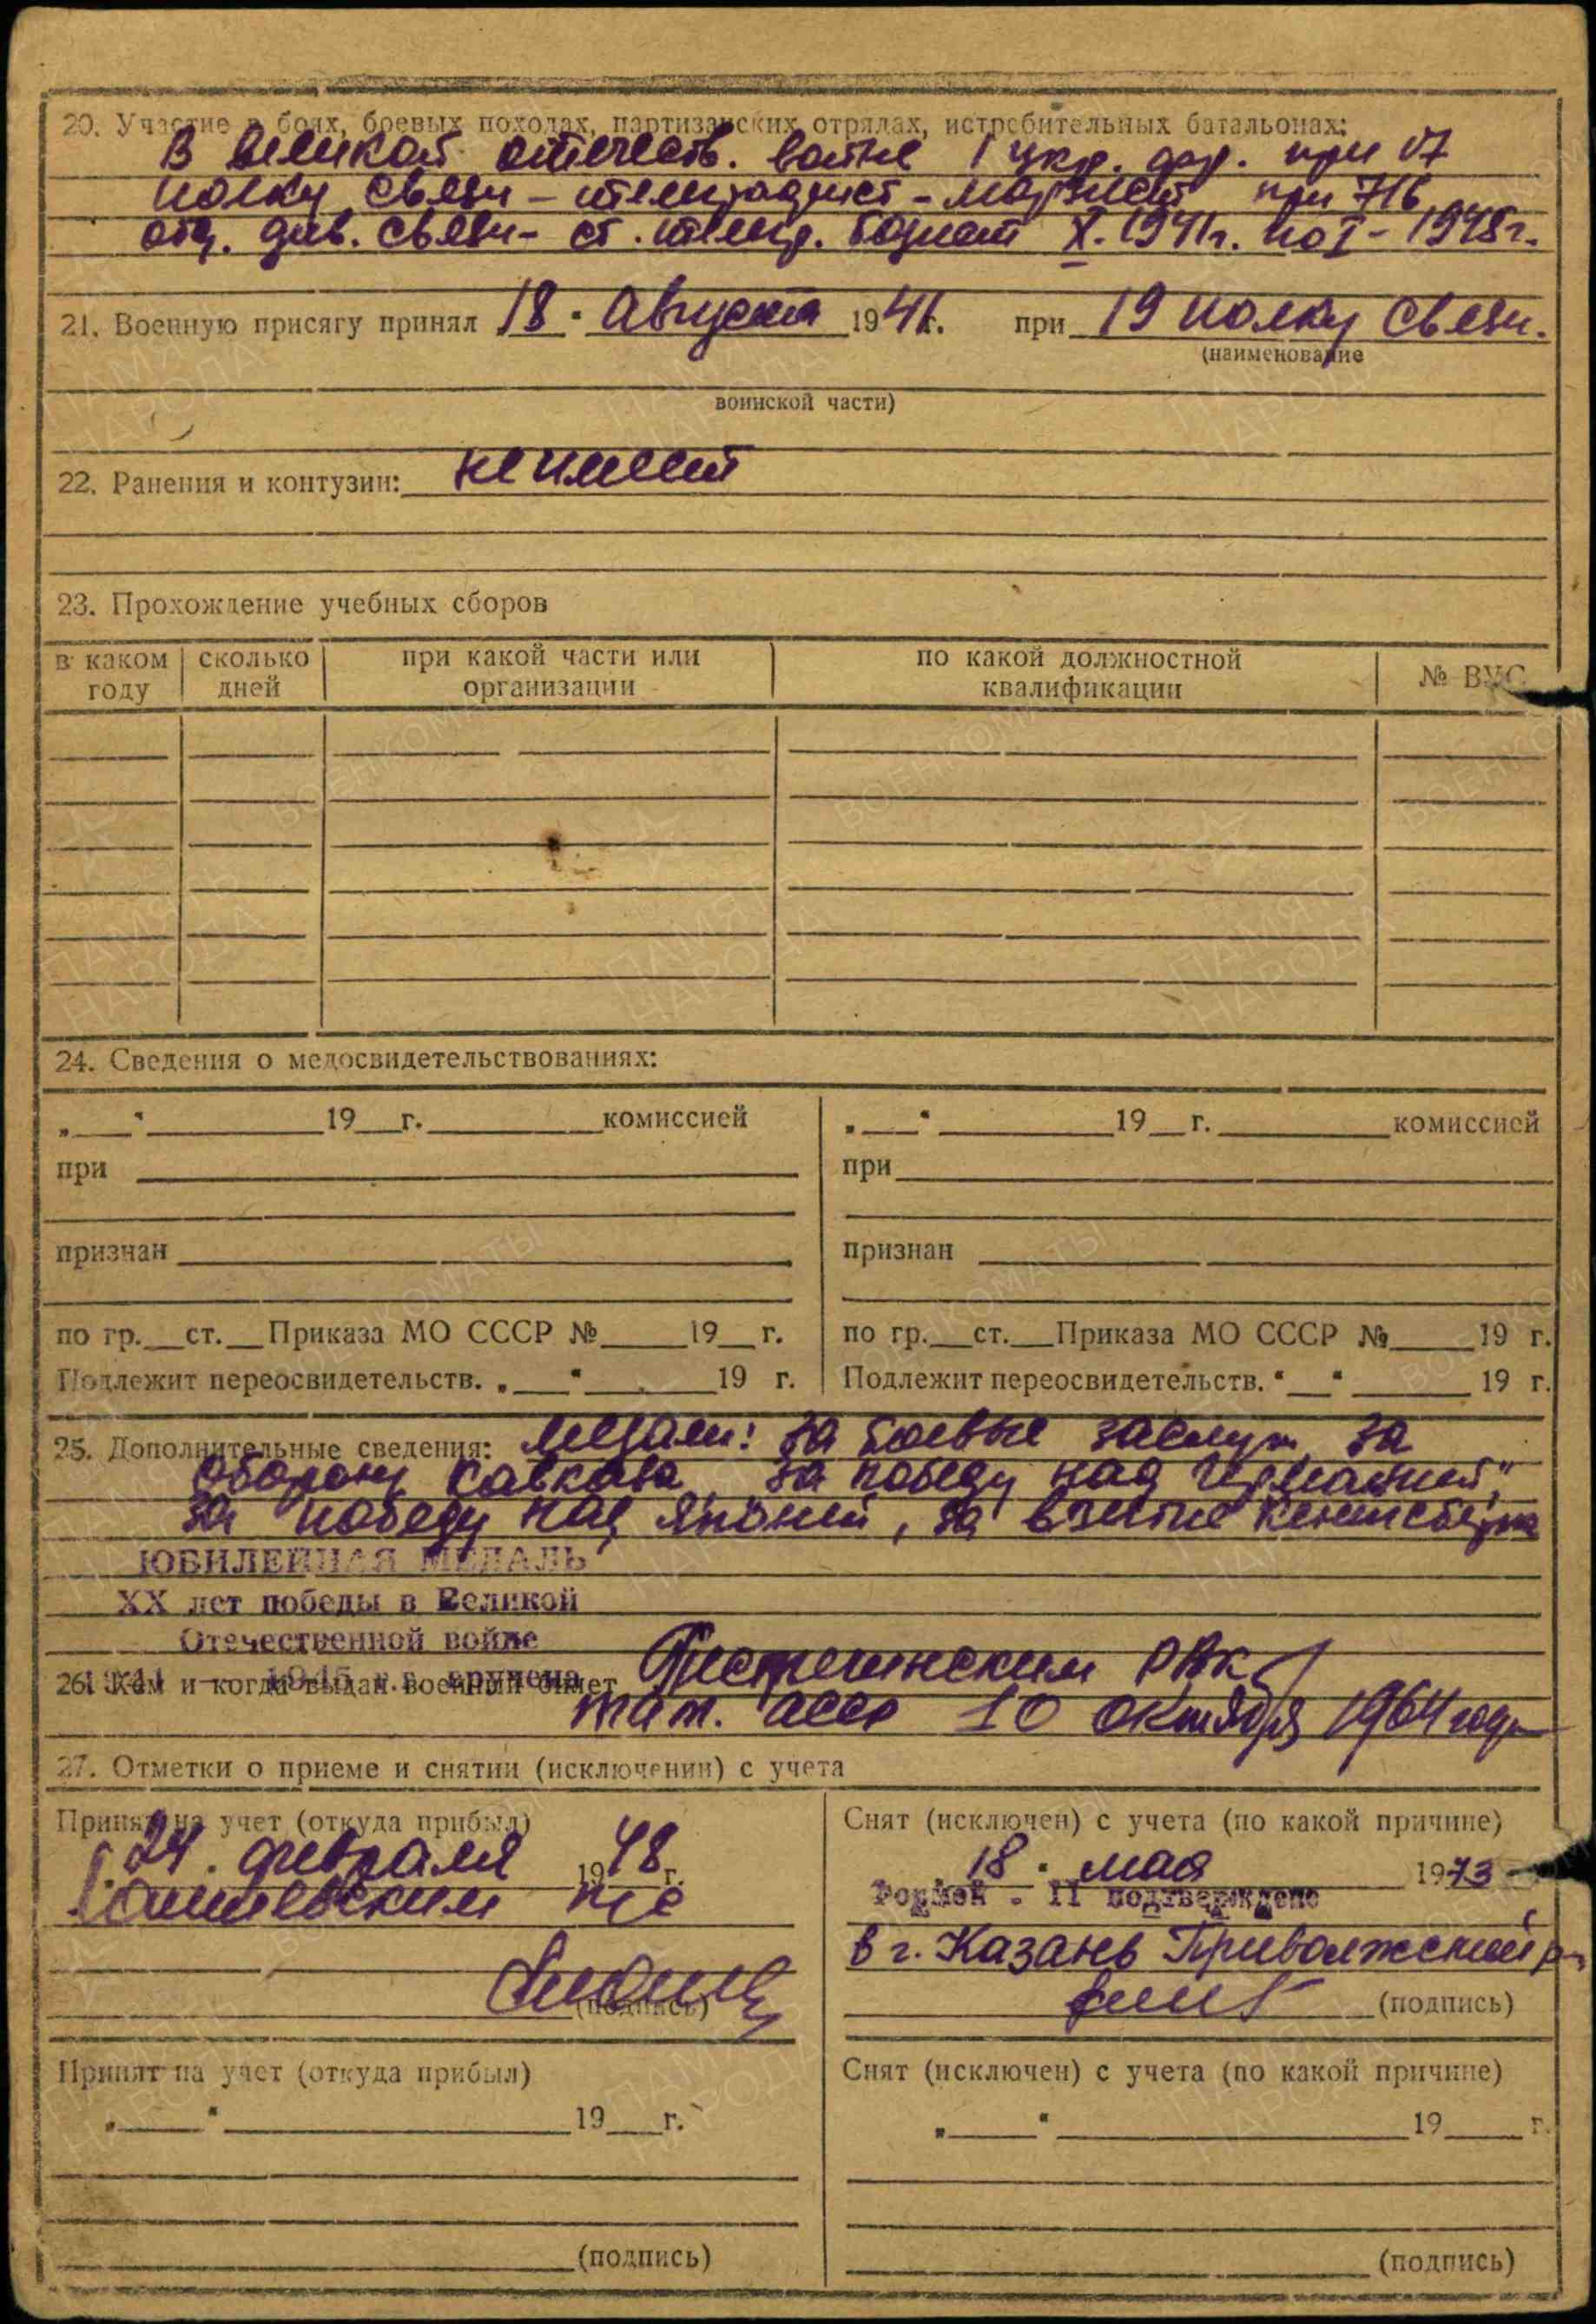 20. Участие в боях, боевых походах, партизанских отрядах, истребительных батальонах:
В Великой отечеств. войне 1 укр. фр. при 17
полку связи - телеграфист - морзист при 716
отд. див. связи - ст. телегр. бодист X. 1941г. по I - 1945г.
21. Военную присягу принял 18 " Августа 1941г. при 19 полку связи.
(наименование
воинской части)
22. Ранения и контузии: не имеет
23. Прохождение учебных сборов
в каком году
сколько дней
при какой части или организации
по какой должностной квалификации
№ ВУС
24. Сведения о медосвидетельствованиях:
„ " 19 г. комиссией
при
признан
по гр. ст. Приказа МО СССР № 19 г.
Подлежит переосвидетельств. „ " 19 г.
„ " 19 г. комиссией
при
признан
по гр. ст. Приказа МО СССР № 19 г.
Подлежит переосвидетельств. " " 19 г.
25. Дополнительные сведения: Медали: За боевые заслуги, За
оборону Кавказа, За победу над Германией,"
За победу над Японией, За взятие Кенигсберга
ЮБИЛЕЙНАЯ МЕДАЛЬ
XX лет победы в Великой
Отечественной войне
1941 - 1945 г.г. вручена
26. Кем и когда выдан военный билет РВК
тат. асср 10 октября 1964 года
27. Отметки о приеме и снятии (исключении) с учета
Принят на учет (откуда прибыл)
24 " февраля 1948 г.
(подпись)
Снят (исключен) с учета (по какой причине)
18 " мая 1973
Формой - 11 подтверждено
в г. Казань Приволжский
(подпись)
Принят на учет (откуда прибыл)
„ " 19 г.
(подпись)
Снят (исключен) с учета (по какой причине)
„ " 19 г.
(подпись)
ПАМЯТЬ НАРОДА
ВОЕНКОМАТЫ